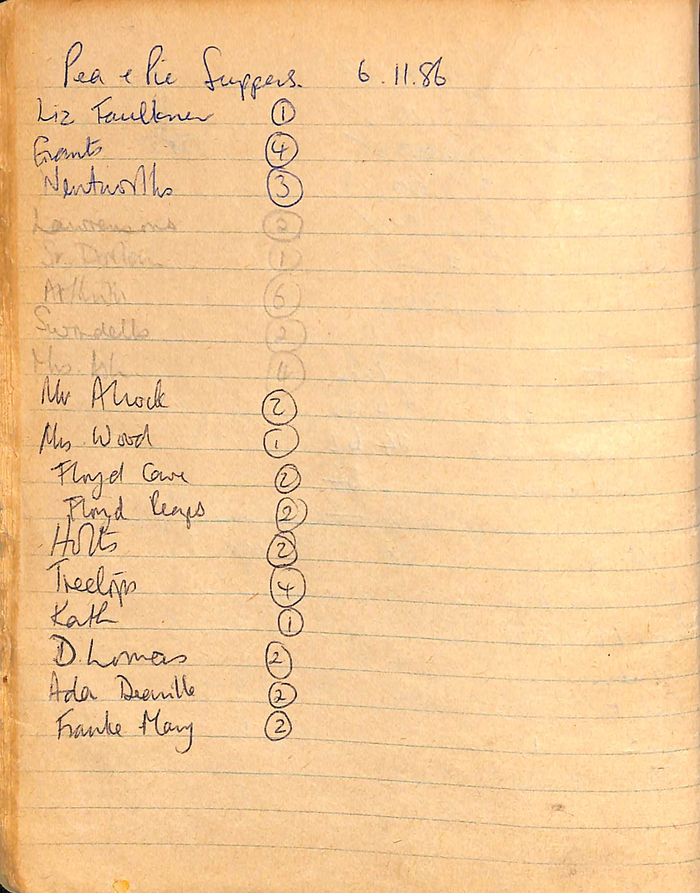 Pea & Pie Suppers. 6.11.86
Liz Faulkner 1
Grants 4
Wentworths 3
Lawrensons 2
Sr. 1
6
Swindells 2
Mrs.
Mr Alcock 2
Mrs Wood 1
Floyd Cave 2
Floyd 2
Holts 2
Treetops 4
Kath 1
D. Lomas 2
Ada Deaville 2
Mary 2